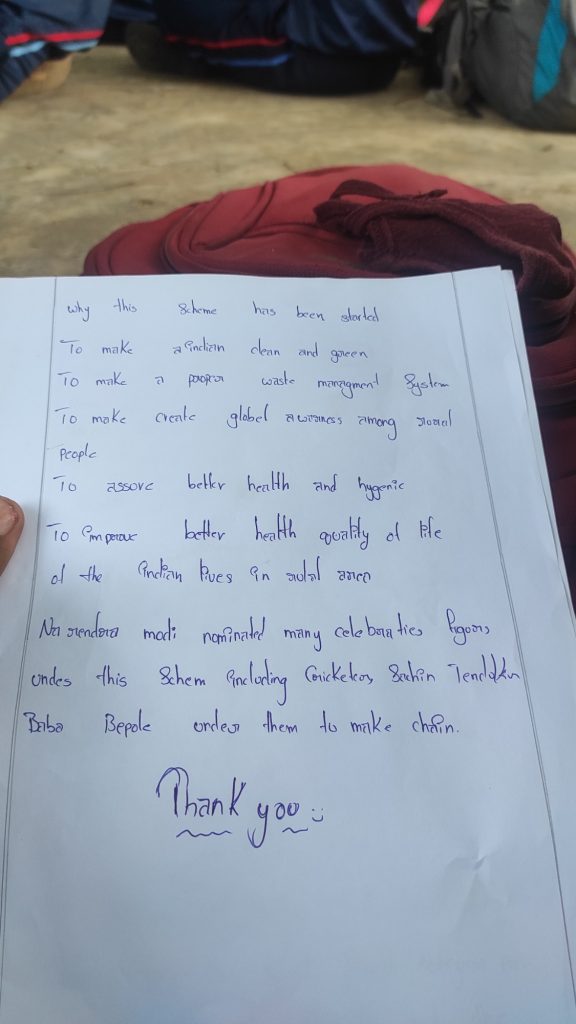 why this Scheme has been started
To make a indian clean and green
To make a proper waste managment System
To make create globel awarness among rural
People
To assore better health and hygenic
To improve better health quality of life
of the indian lives in rural area
Narendera modi nominated many celebraties figors,
under this Schem including Cricketor, Sachin Tendulkr
Baba Bepole under them to make chain.
Thank you